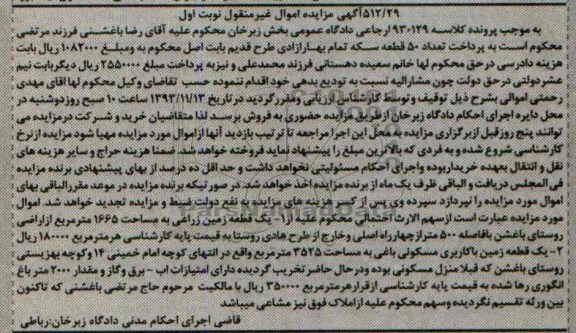 ۵۱۲/۲۹آگهی مزایده اموال غیرمنقول نوبت اول
به موجب پرونده کلاسه ۹۳۰۱۲۹ ارجاعی دادگاه عمومی بخش زبرخان محکوم علیه آقای رضا باغشنی فرزند مرتضی
محکوم است به پرداخت تعداد ۵۰ قطعه سکه تمام بهارآزادی طرح قدیم بابت اصل محکوم به ومبلغ ۱۰۸۲۰۰۰ ریال بابت
هزینه دادرسی درحق محکوم لها خانم سعیده دهستانی فرزند محمدعلی و نیزبه پرداخت مبلغ ۲۵۵۰۰۰۰ ریال دیگربابت نیم
عشردولتی درحق دولت چون مشارالیه نسبت به تودیع بدهی خود اقدام ننموده حسب تقاضای وکیل محکوم لها آقای مهدی
رحمتی اموالی بشرح ذیل توقیف وتوسط کارشناس ارزیابی ومقررگردید درتاریخ ۱۳۹۳/۱۱/۱۳ ساعت ۱۰ صبح روزدوشنبه در
محل دایره اجرای احکام دادگاه زبرخان ازطریق مزایده حضوری به فروش برسد لذا متقاضیان خرید و شرکت درمزایده می
توانند پنج روزقبل ازبرگزاری مزایده به محل این اجرا مراجعه تا ترتیب بازدید آنها ازاموال مورد مزایده مهیا شود مزایده ازنرخ
کارشناسی شروع شده و به فردی که بالاترین مبلغ را پیشنهاد نماید فروخته خواهد شد. ضمنا هزینه حراج و سایر هزینه های
نقل و انتقال بعهده خریداربوده واجرای احکام مسئولیتی نخواهد داشت و حد اقل ده درصد از بهای پیشنهادی برنده مزایده
فی المجلس دریافت و الباقی ظرف یک ماه از برنده مزایده اخذ خواهد شد. در صورتیکه برنده مزایده در موعد مقررالباقی بهای
اموال مورد مزایده را نپردازد سپرده وی پس از کسر هزینه های مزایده به نفع دولت ضبط و مزایده تجدید خواهد شد. اموال
مورد مزایده عبارت است ازسهم الارث احتمالی محکوم علیه از ۱- یک قطعه زمین زراعی به مساحت ۱۶۶۵ مترمربع ازاراضی
روستای باغشن بافاصله ۵۰۰ مترازچهارراه اصلی وخارج از طرح هادی روستا به قیمت پایه کارشناسی هرمترمربع ۱۸۰۰۰۰ ریال
۲- یک قطعه زمین باکاربری مسکونی باغی به مساحت ۳۵۲۵ مترمربع واقع در انتهای کوچه امام خمینی ۱۴ وکوچه بهزیستی
روستای باغشن که قبلا منزل مسکونی بوده ودرحال حاضر تخریب گردیده دارای امتیازات آب - برق وگاز و مقدار ۲۰۰۰ متر باغ
انگوری رها شده به قیمت پایه کارشناسی ازقرارهرمترمربع ۳۵۰۰۰۰ ریال با مالکیت مرحوم حاج مرتضی باغشنی که تاکنون
بین ورثه تقسیم نگردیده وسهم محکوم علیه ازاملاک فوق نیز مشاعی میباشد
قاضی اجرای احکام مدنی دادگاه زبرخان:رباطی